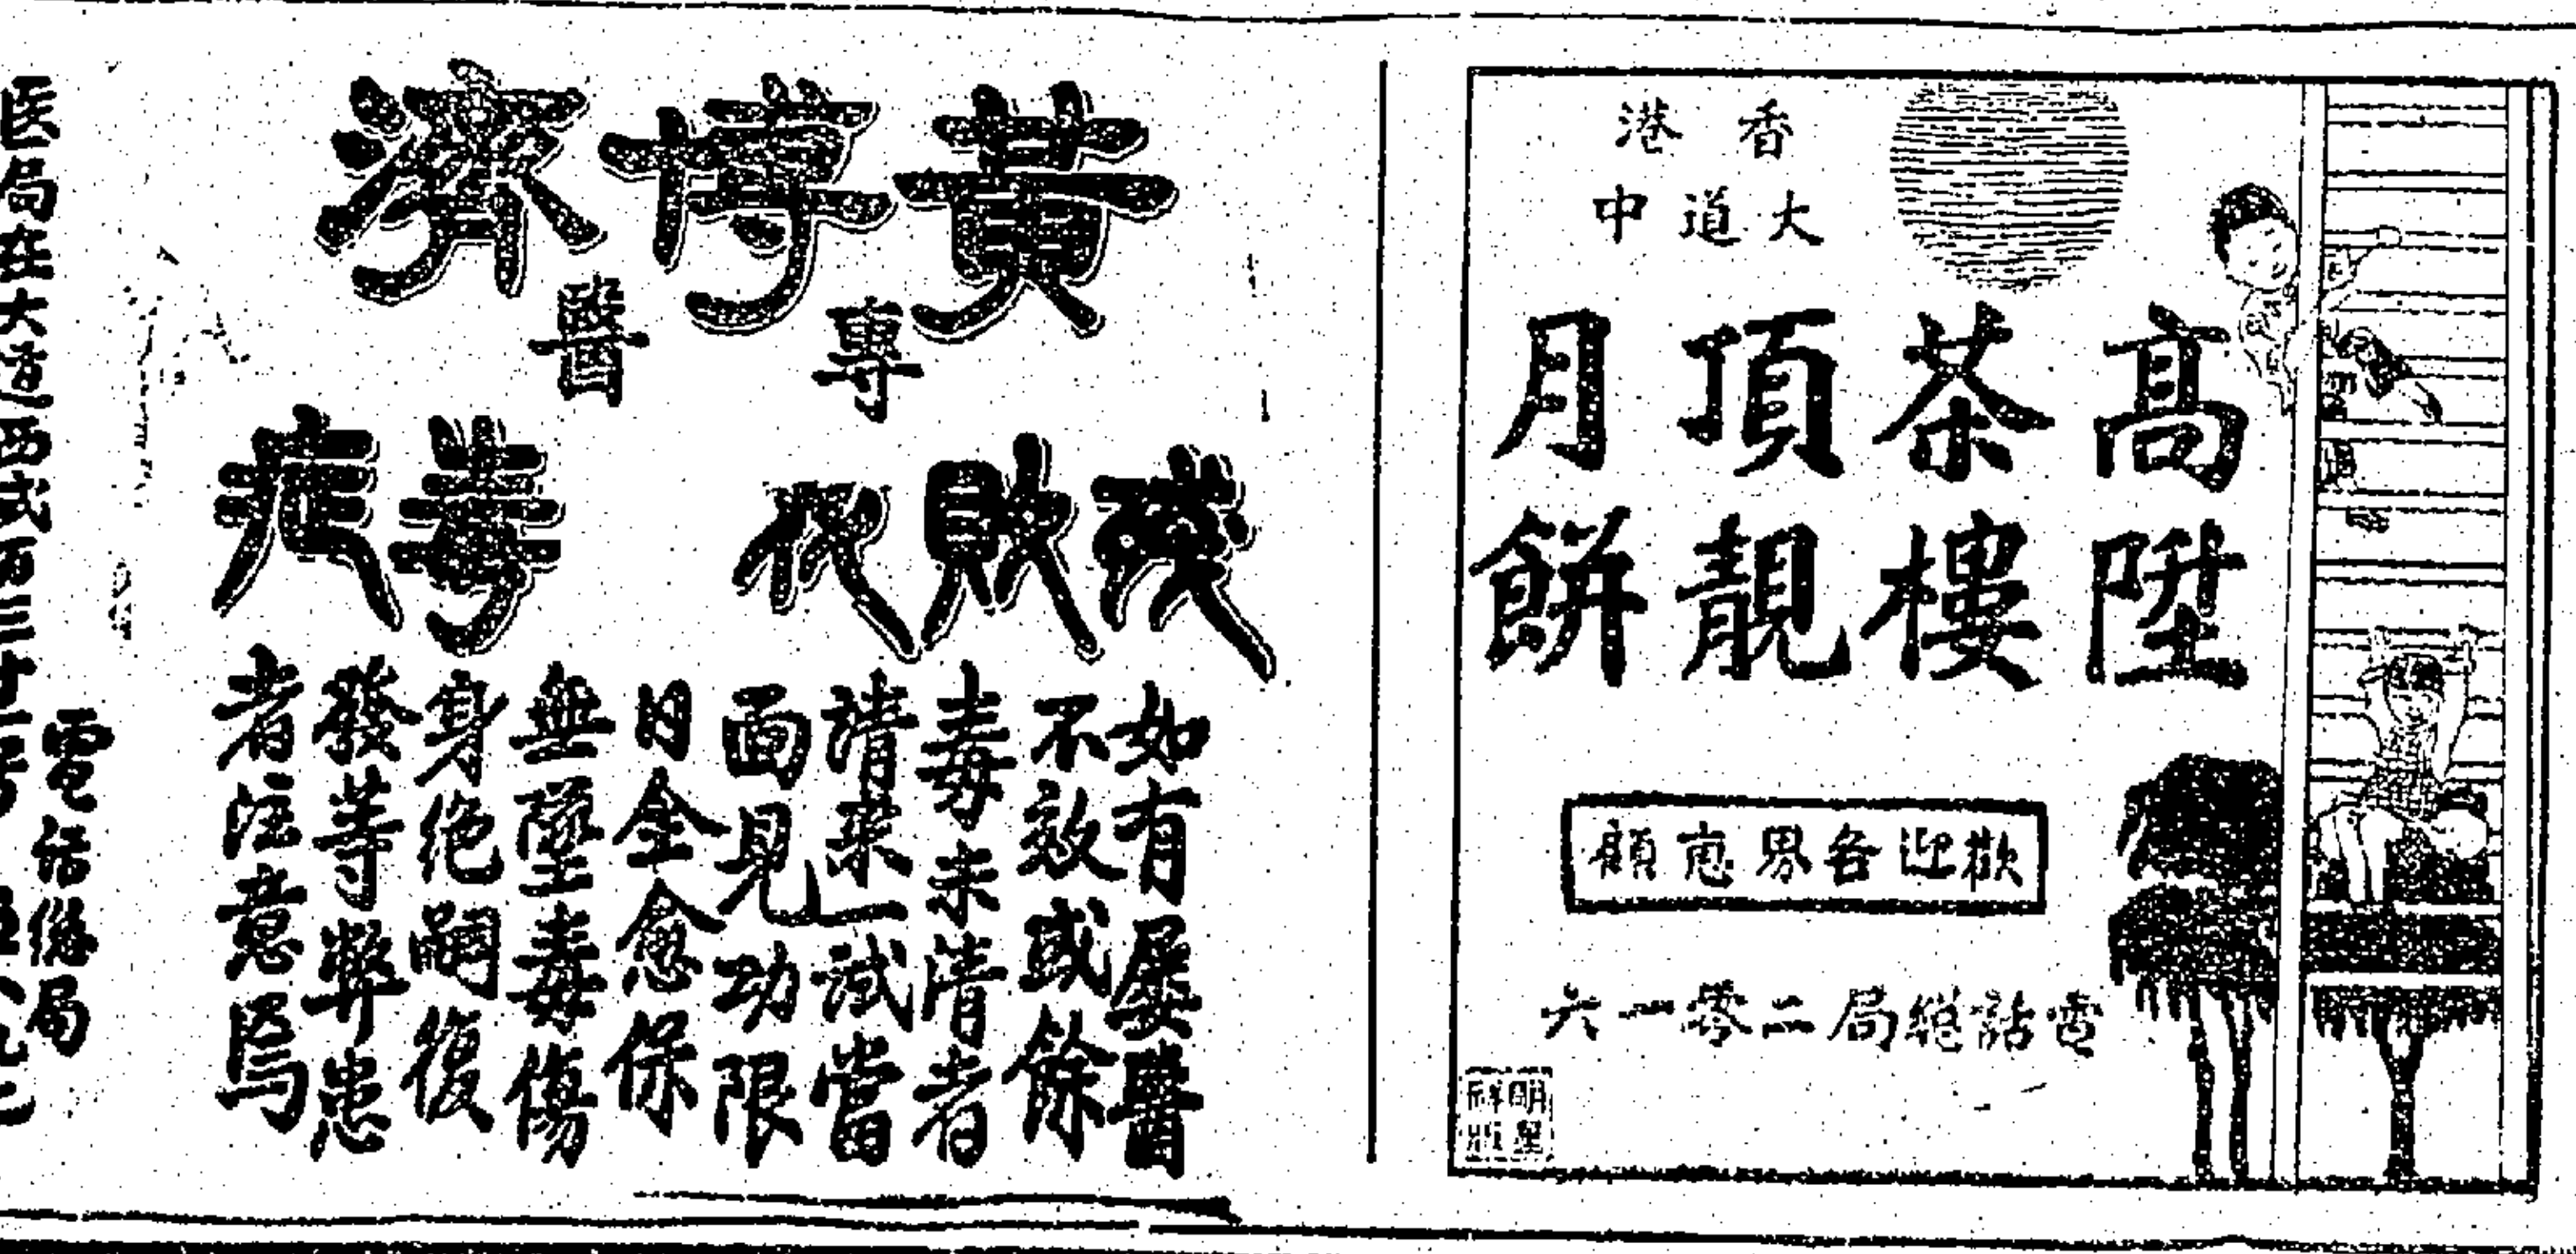 香港
大道中
高陞
茶樓
頂靚
月餅
歡迎各界惠顧
電話總局二零一六
明星
黃博濟
專醫
毒疾
如有屢醫
不效或餘
毒未清者
請來一試當
面見功限
日全愈保
無墜毒傷
身絕嗣復
發等弊患
者注意焉
電話總局